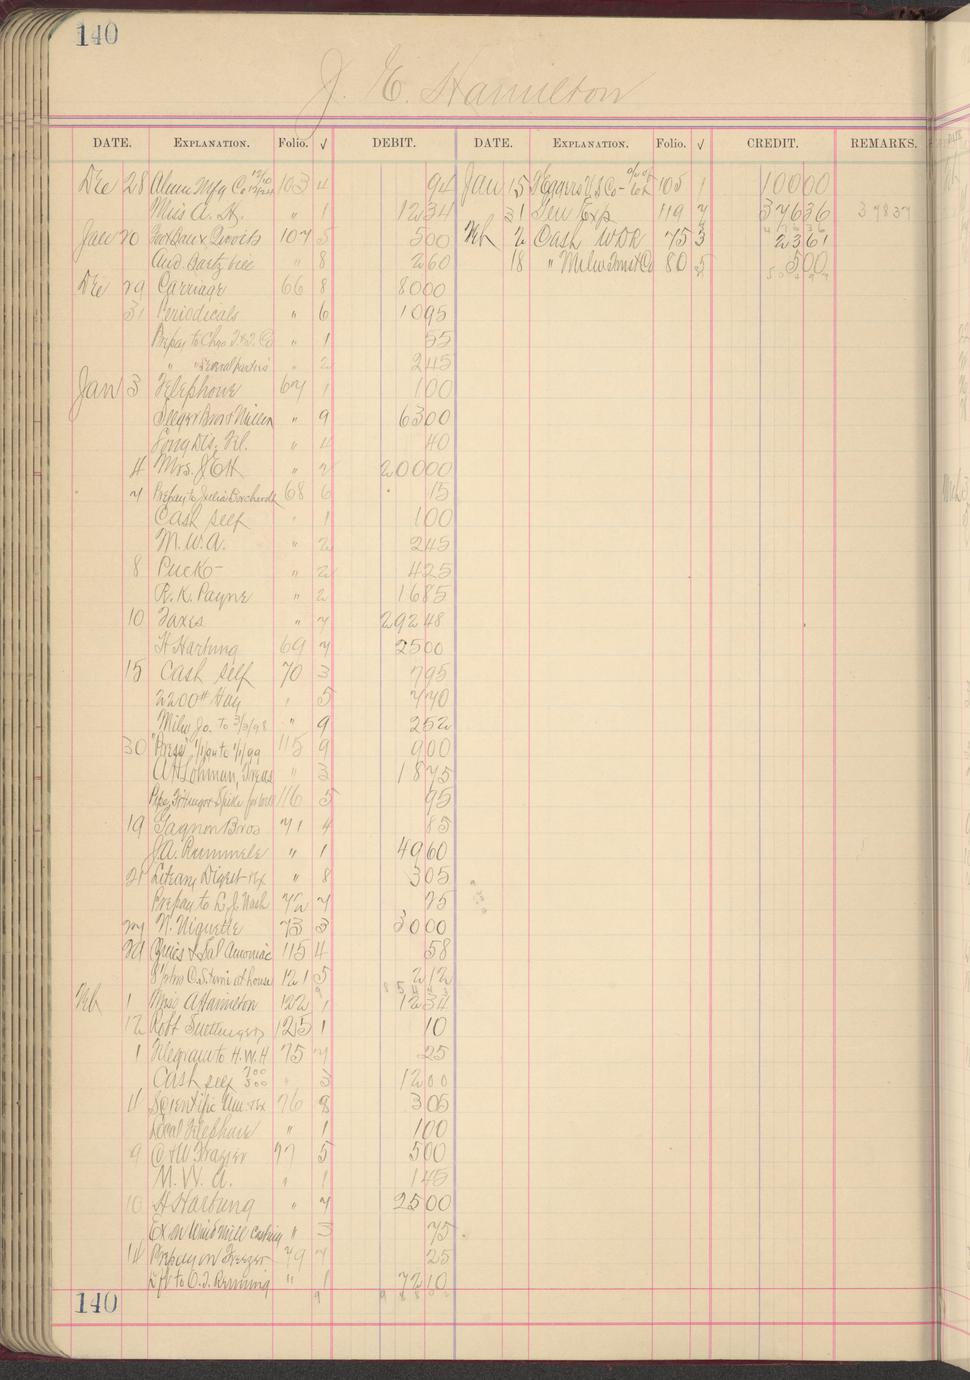 140
J. E. Hamilton
DATE. EXPLANATION. Folio. √ DEBIT. DATE. EXPLANATION. Folio. √ CREDIT. REMARKS.
Dec 28 Alum Mfg Co 103 4 94 Jan 15 F Eggers V S Co 105 1 10000
Miss A. H. " 1 1234 31 Gen Exp 119 7 37636 37837
Jan 20 107 5 500 Feb 2 Cash WDR 75 3 2361
Aud. Bartz bill " 8 260 18 " Milw Co 80 5 500
Dec 29 Carriage 66 8 8000
31 Periodicals " 6 1095
Prepay to Chgo Co " 1 55
" " Several parties " 2 245
Jan 3 Telephone 67 1 100
Seeger Bros " 9 6300
Long Dis. Tel. " 4 40
4 Mrs. J E H " 2 20000
7 Prepay to Julia Borcherdt 68 6 15
Cash self " 1 100
M. W. A. " 2 245
8 Puck " 2 425
R. K. Payne " 2 1685
10 Taxes " 7 29248
H Hartung 69 7 2500
15 Cash self 70 3 795
2200# Hay " 5 770
Milw Jo. to 3/3/98 " 9 252
30 "Press" to 1/1/99 115 9 900
A H Lohman, Treas " 3 1875
116 5 95
19 Gagnon Bros 71 4 85
J A. Rummele " 1 4960
21 Literary Digest " 8 305
Prepay to L. J. Nash 72 7 25
27 N. Niquette 73 3 3000
29 & Sal Amoniac 115 4 58
at house 121 5 212
Feb 1 Miss A Hamilton 122 1 1234
12 Robt 125 1 10
1 Telegram to H. W. H 75 7 25
Cash self 700 500 " 3 1200
4 Scientific Am 76 8 305
Local Telephone " 1 100
9 C & W Frazier 77 5 500
M. W. A. " 1 145
10 H Hartung " 7 2500
Ex on Wind mill casting " 3 75
14 Prepay on Freezer 79 7 25
to O. T. Renning " 1 7210
140